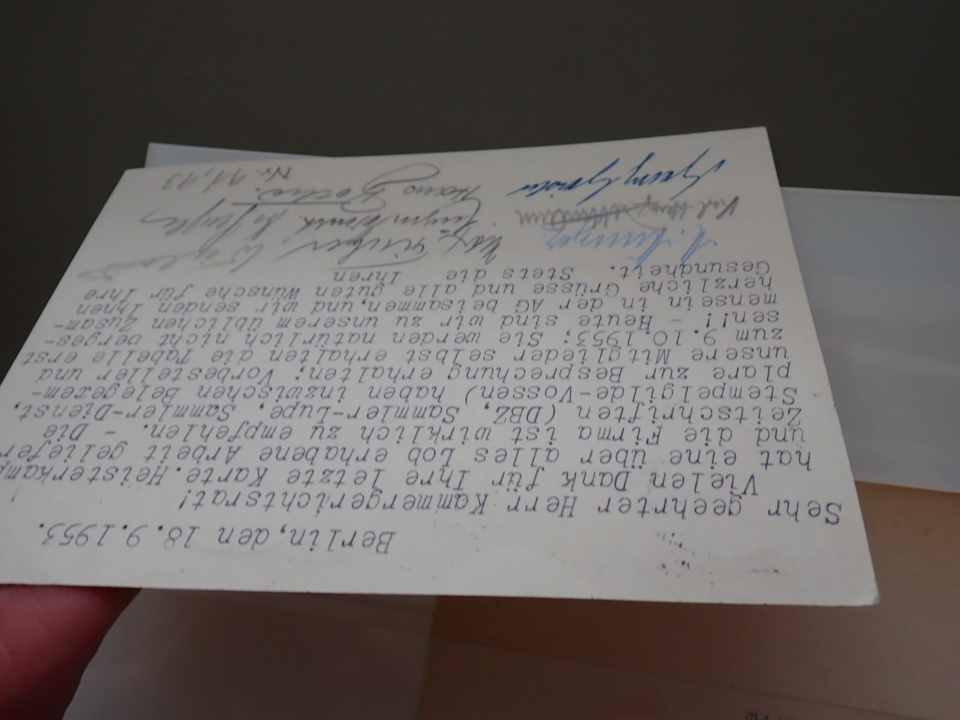 Berlin, den 18.9.1953.
Sehr geehrter Herr Kammergerichtsrat!
Vielen Dank für Ihre letzte Karte. Heisterkamp
hat eine über alles Lob erhabene Arbeit geliefer
und die Firma ist wirklich zu empfehlen. - Die
Zeitschriften (DBZ, Sammler-Lupe, Sammler-Dienst,
Stempelgilde-Vossen) haben inzwischen Belegexem-
plare zur Besprechung erhalten; Vorbesteller und
unsere Mitglieder selbst erhalten die Tabelle erst
zum 9.10.1953; Sie werden natürlich nicht verges-
sen!! - Heute sind wir zu unserem üblichen Zusam-
mensein in der AG beisammen, und wir senden Ihnen
herzliche Grüsse und alle guten Wünsche für Ihre
Gesundheit. Stets die Ihren
Hans
Nr. 11, 13